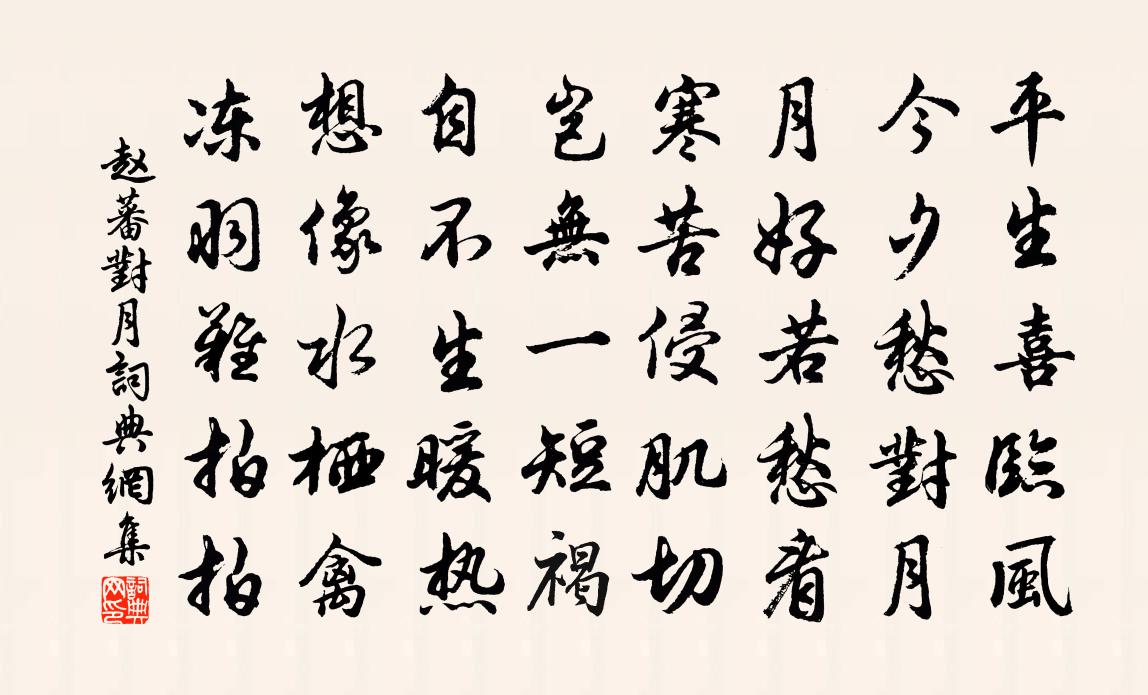 平生喜臨風
今夕愁對月
月好若愁看
寒苦侵肌切
岂無一短褐
自不生暖热
想像水栖禽
冻羽難拍拍
赵蕃對月詞典網集
詞典网印